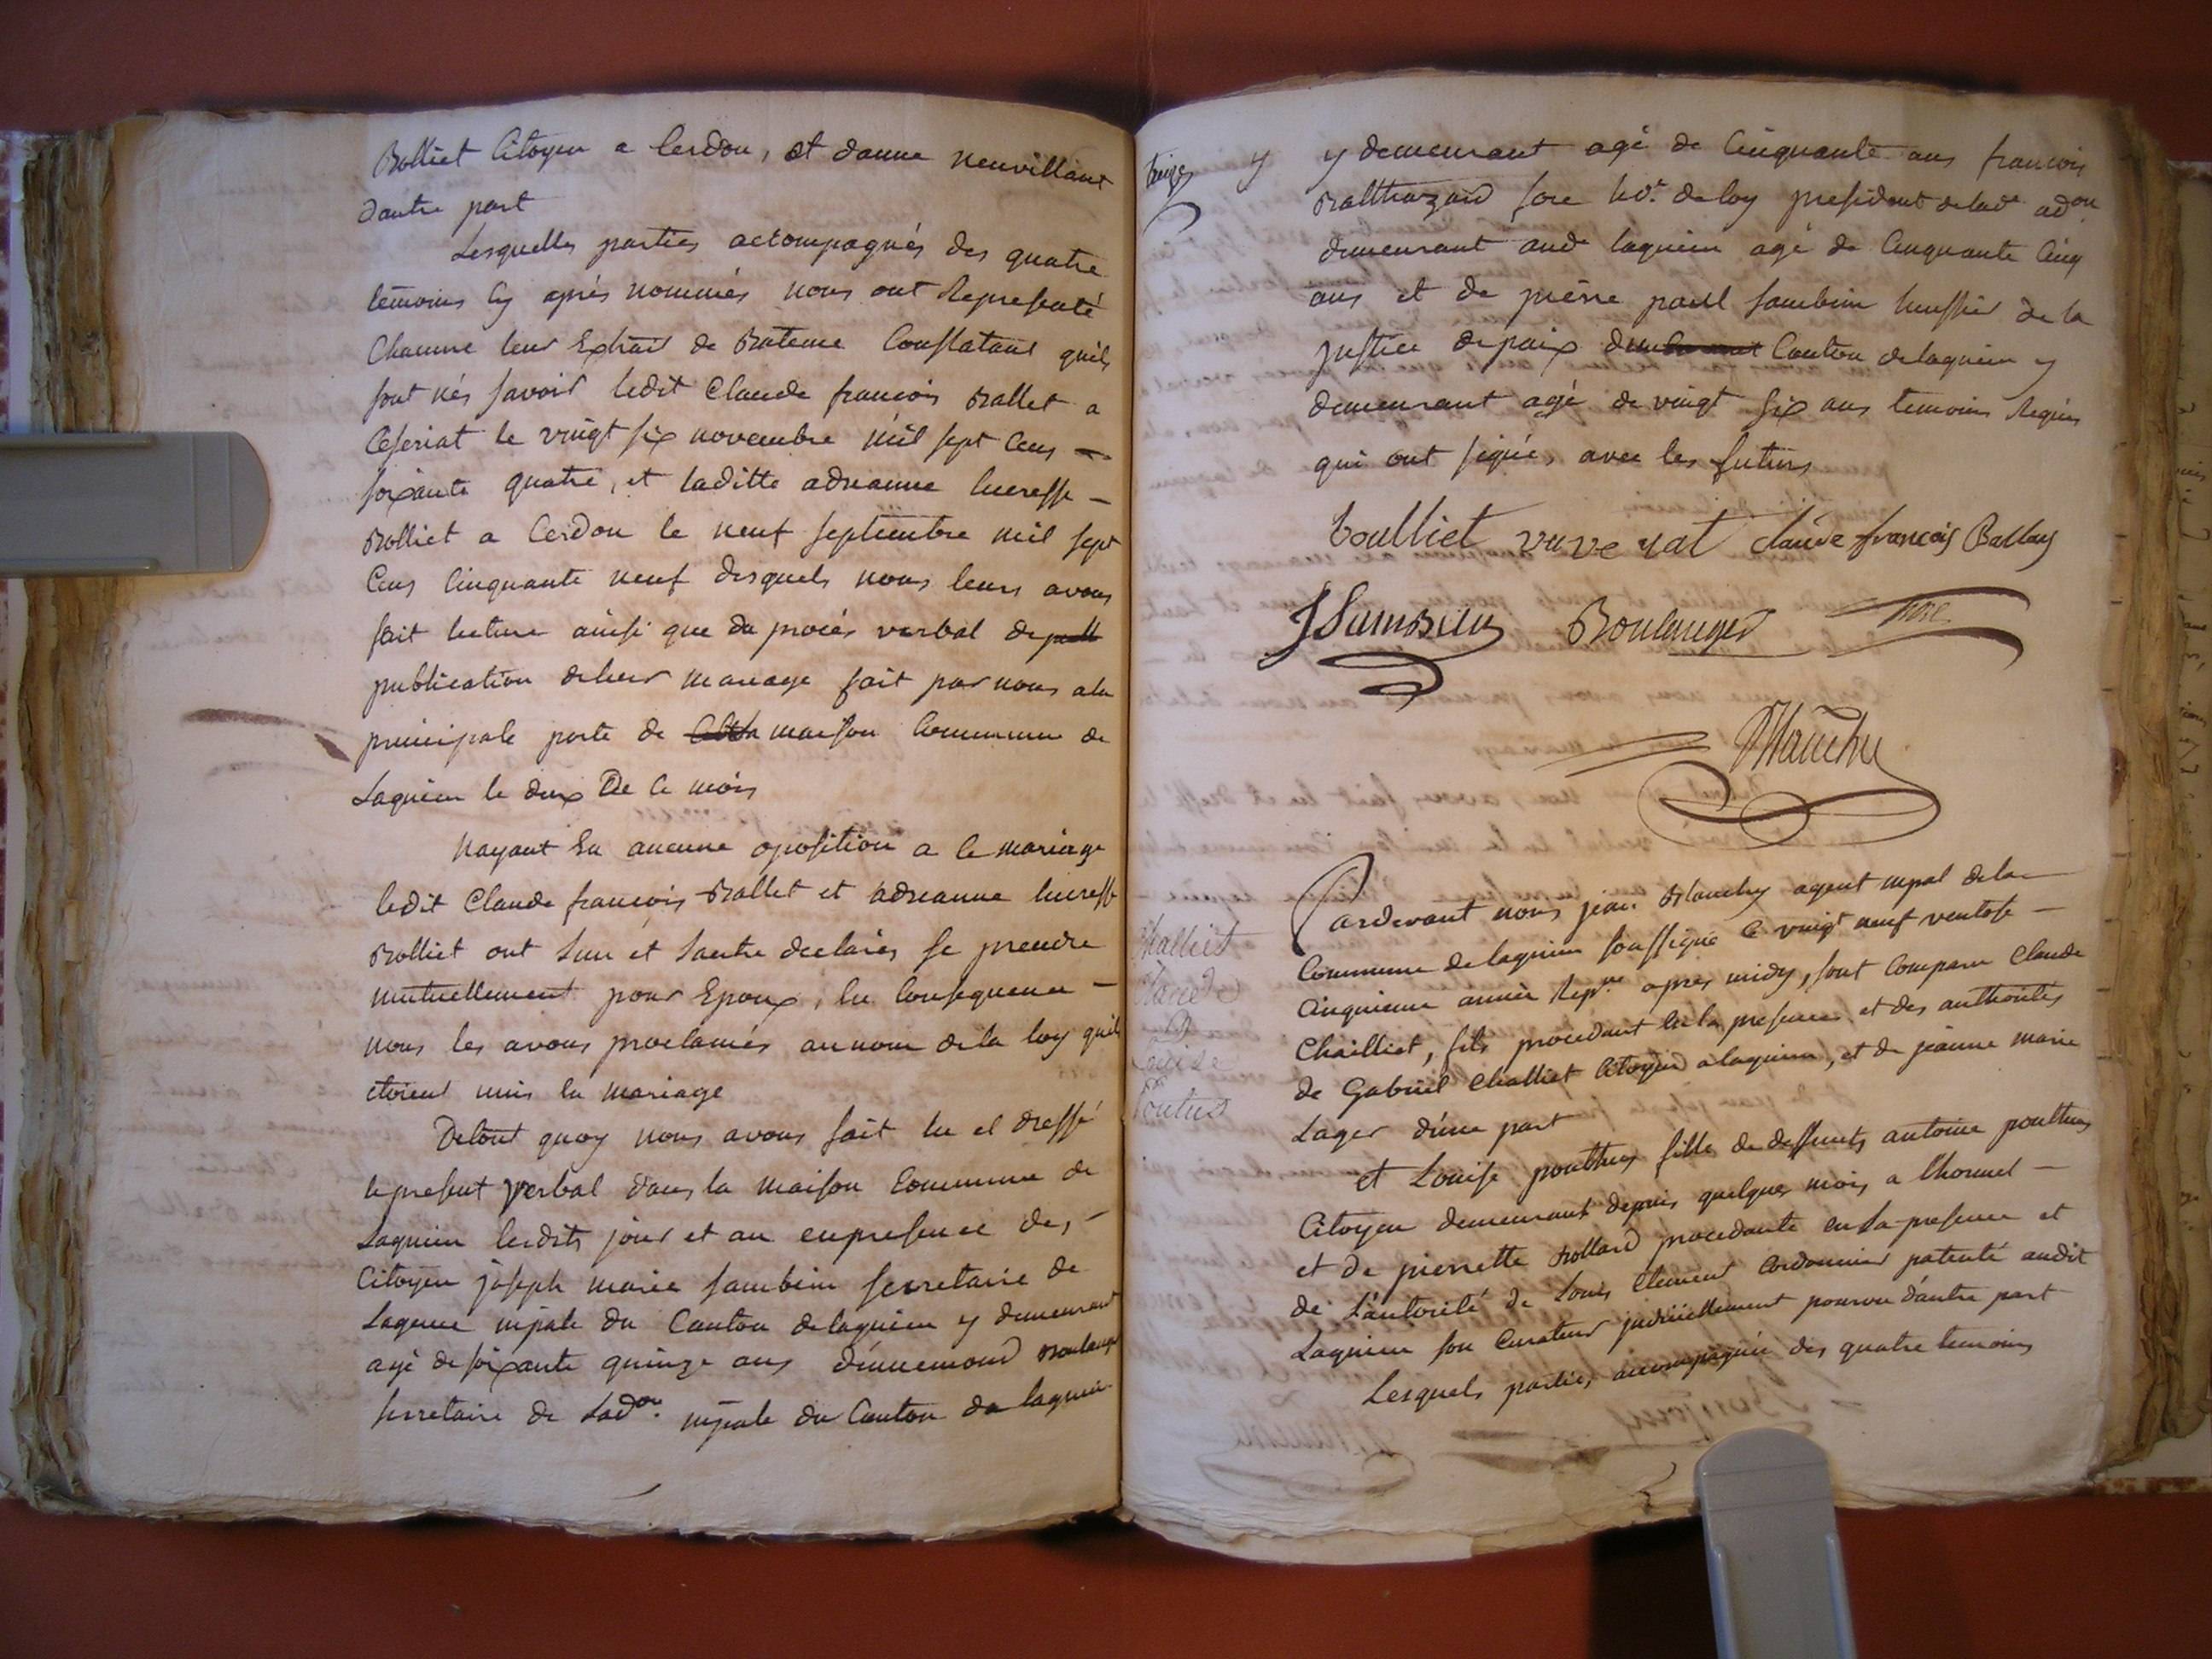 Bolliet Citoyen a Cerdon, et danne neuvillant
dautre part
Lesquelles parties accompagnés des quatre
temoins Cy aprés nommés nous ont Representé
Chacune leur Extrait de Bateme Constatant quils
sont nés savoir ledit Claude francois Ballet a
Ceseriat le vingt six novembre mil sept Cens
soixante quatre, et laditte adrianne lucresse
Bolliet a Cerdon le neuf septembre mil sept
Cens Cinquante neuf desquels nous leurs avons
fait lecture ainsi que du procés verbal de
publication deleur mariage fait par nous ala
principale porte de maison Commune de
Lagnieu le deux De Ce mois
Nayant Eu aucune oposition a Ce mariage
ledit Claude francois Ballet et adrianne lucresse
Bolliet ont Lun et Lautre declarés se prendre
mutuellement pour Epoux, En Consequence
nous les avons proclamés aunom dela loy quils
etoient unis En mariage
Detout quoy nous avons fait lu et dressé
le present verbal dans la maison Commune de
Lagnieu lesdits jour et an enpresence des
Citoyen joseph marie sambein secretaire de
Lagence mpale du Canton delagnieu y demeurant
agé de soixante quinze ans Boulanger
secretaire de Ladon mpale du Canton de lagnieu
y demeurant agé de Cinquante ans francois
Balthazard sore hoe de loy president delade adon
demeurant aude lagnieu agé de Cinquante Cinq
ans et de pierre paul sambein huissier de la
justice depaix Canton delagnieu y
demeurant agé de vingt six ans temoins Requis
qui ont signé, avec les futurs
bolliet claude françois Ballay
JSambein Boulanger sore
Blanchy
Pardevant nous jean Blanchy agent mpal dela
Commune delagnieu soussigné Ce vingt neuf ventose
Cinquieme année Repne apres midy, sont Comparu Claude
Chailliet, fils procedant En la presence et des authorités
de Gabriel Challiet Citoyen alagnieu, et de jeanne marie
Lager d'une part
Challiet
Claude
Louise
Poutus
et Louise pouthus fille de deffunts antoine pouthus
Citoyen demeurant depuis quelques mois a
et de pierrette Bollard procedante en La presence et
de L'autorité de Louis Clement Cordonnier patenté audit
Lagnieu son Curateur judiciellement pourvu dautre part
Lesquels parties accompagnée des quatre temoins